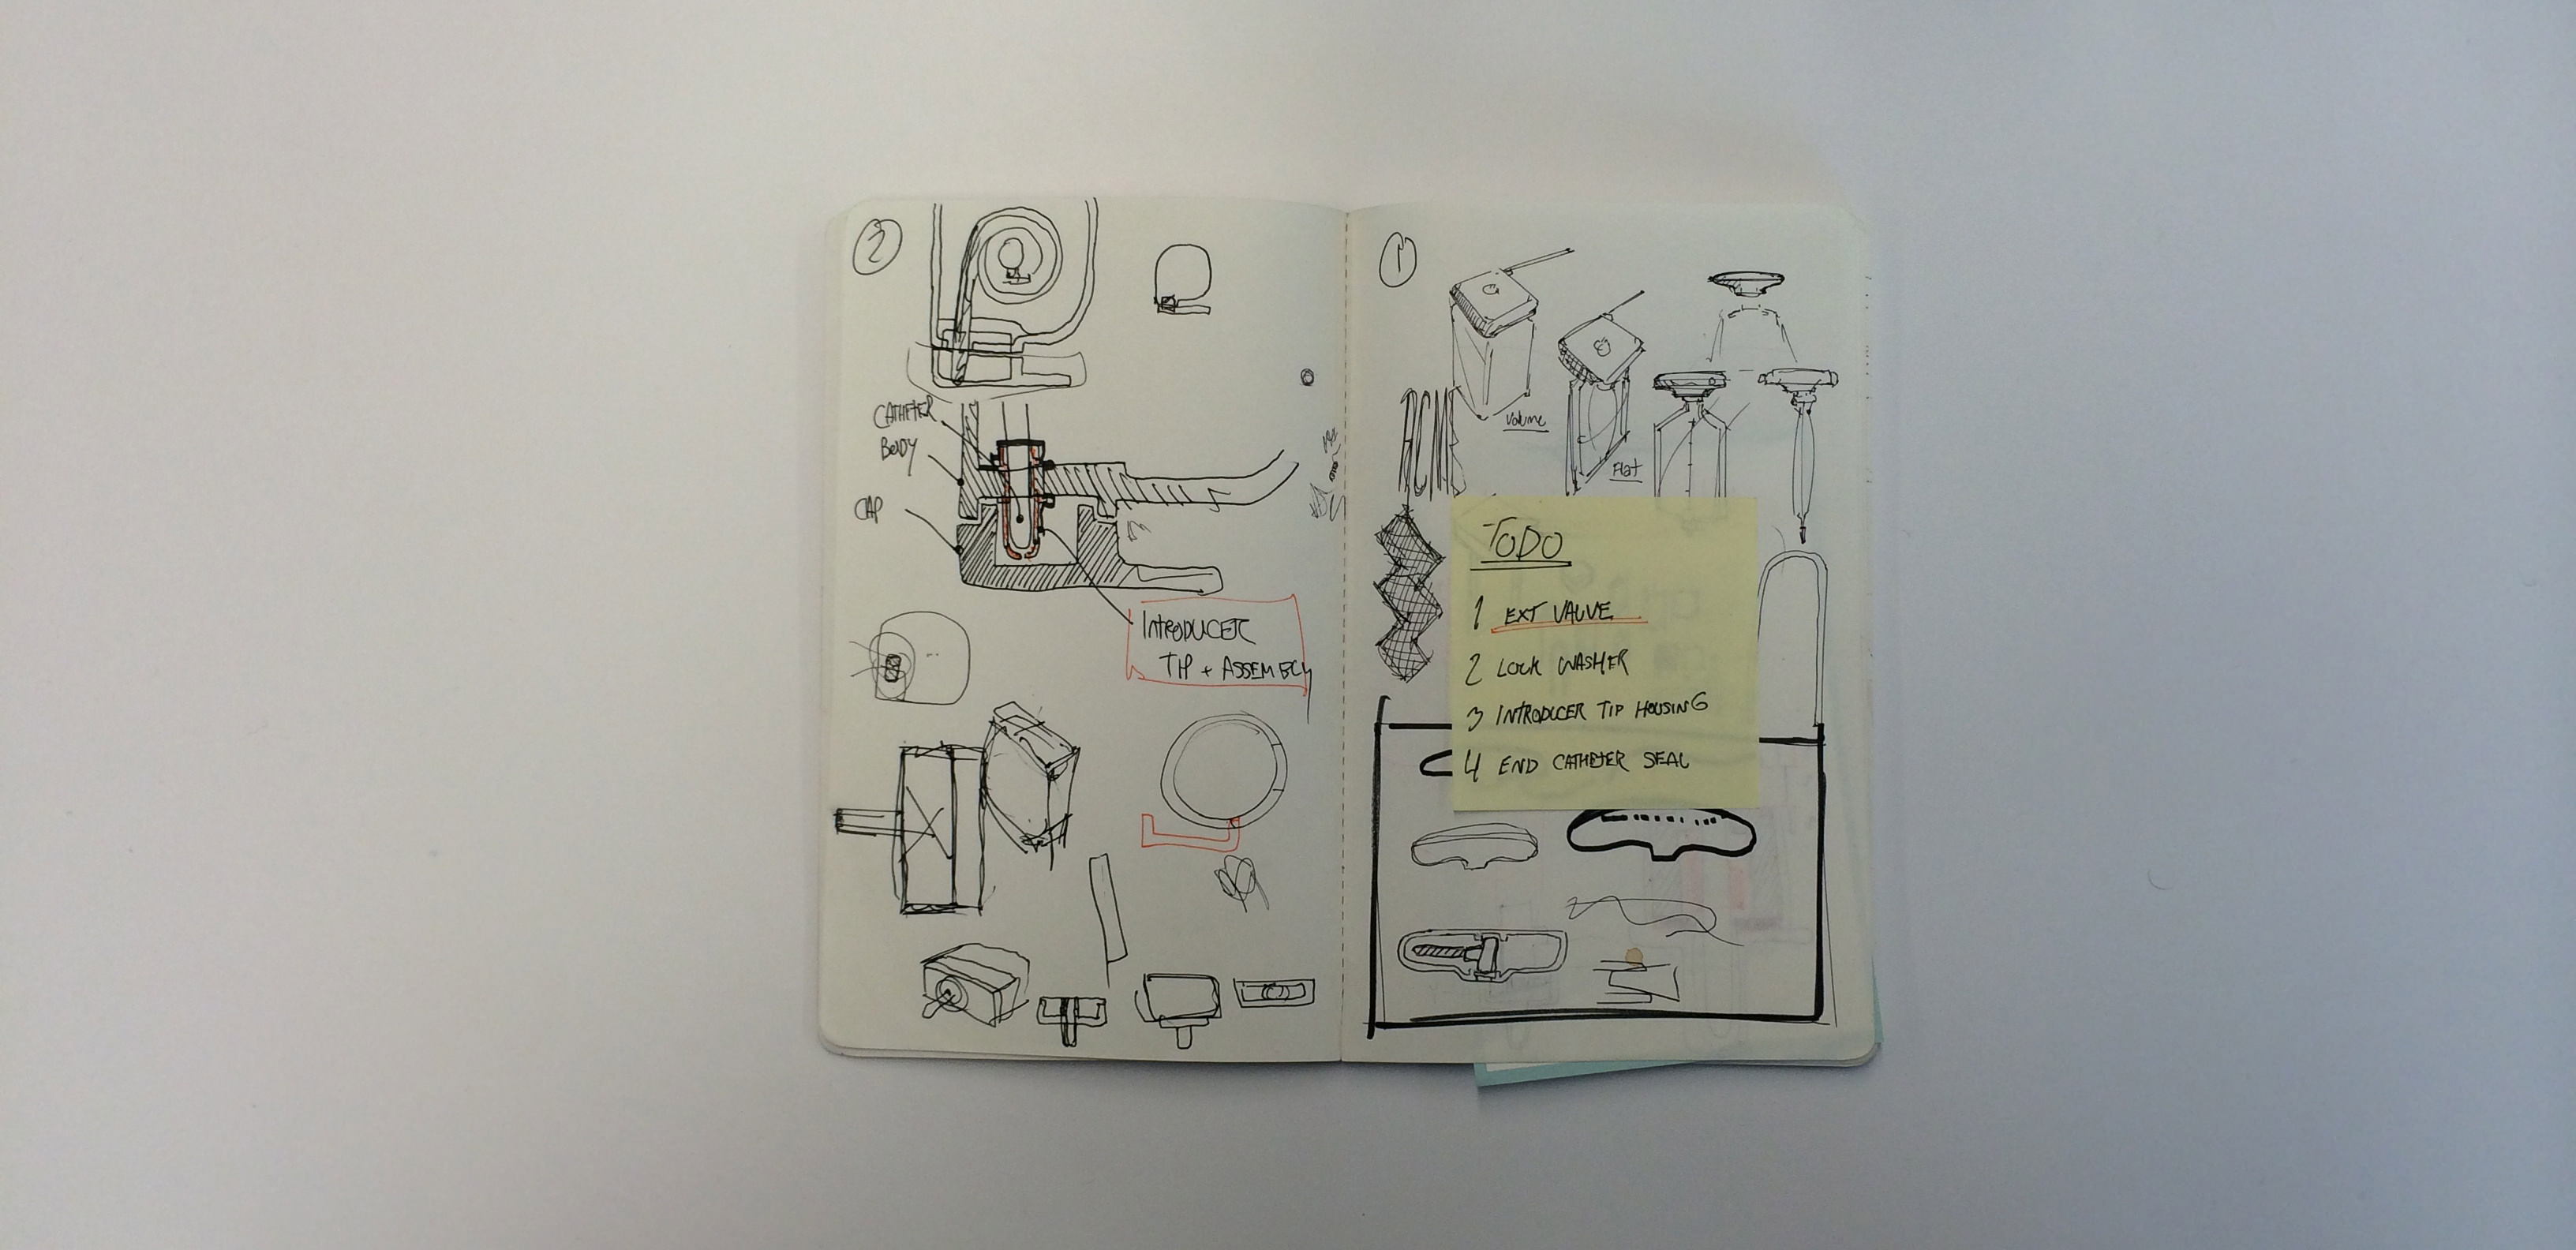 2
CATHETER
BODY
CAP
INTRODUCER
TIP + ASSEMBLY
1
Volume
Flat
TODO
1 EXT VALVE
2 LOCK WASHER
3 INTRODUCER TIP HOUSING
4 END CATHETER SEAL